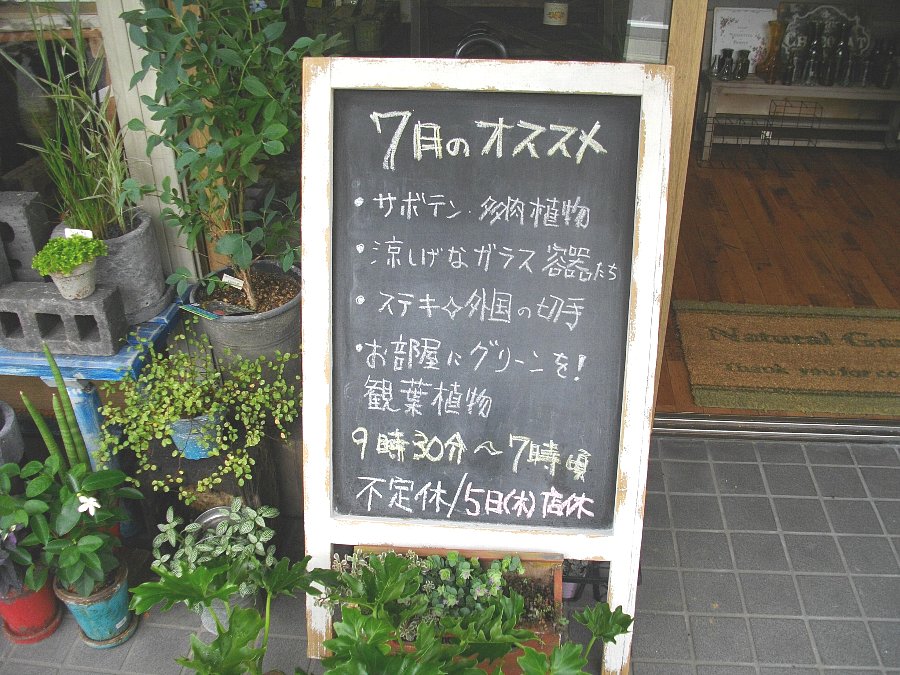 7月のオススメ
・サボテン・多肉植物
・涼しげなガラス容器たち
・ステキ☆外国の切手
・お部屋にグリーンを!
観葉植物
9時30分〜7時頃
不定休/5日(木)店休
Natural Gre
Thank you for co